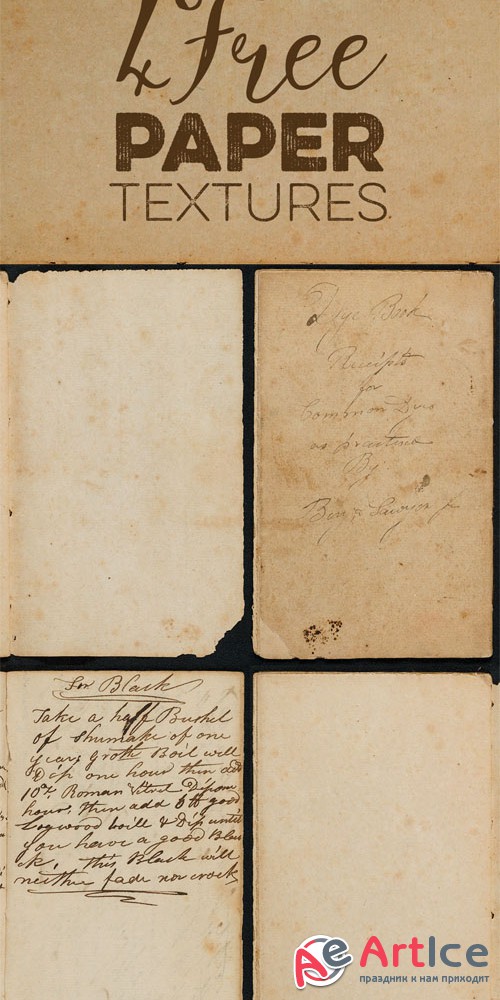 4 Free
PAPER
TEXTURES
Dye Book
Receipts
for
Common Dyes
as practised
By
Benj Sawyer
For Black
Take a half Bushel
of Shumake of one
years groth Boil will
Dip one hour then add
10oz Roman Vitrol Dip one
hour, then add 6 lb good
Logwood boill & Dip until
you have a good Blac
ck, this Black will
neither fade nor crock
ArtIce
праздник к нам приходит